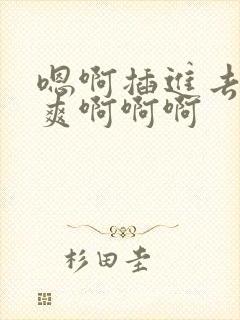 嗯啊插进去
爽啊啊啊
杉田圭